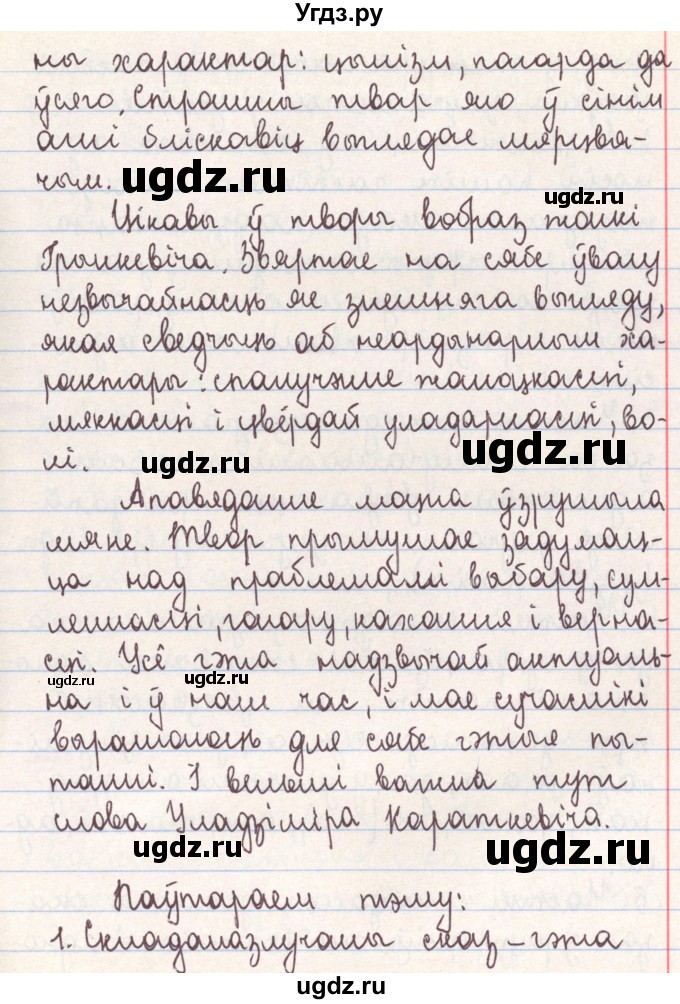 Угдз.ру
ны характар: цынізм, пагарда да
ўсяго. Страшны твар яго ў сінім
агні бліскавіц выглядае мярцвя-
чым. ugdz.ru
ugdz.ru
Цікавы ў творы вобраз жонкі
Грынкевіча. Звяртае на сябе ўвагу
незвычайнасць яе знешняга выгляду,
якая сведчыць аб неардынарным ха-
рактары: спалучэнне жаноцкасці,
мяккасці і цвёрдай уладарнасці, во-
лі. ugdz.ru ugdz.ru
Апавяданне моцна ўзрушыла
мяне. Твор прымушае задумац-
ца над праблемамі выбару, сум-
леннасці, гонару, кахання і верна-
сці. Усё гэта надзвычай актуаль-
ugdz.ru ugdz.ru
на і ў наш час, і мае сучаснікі
вырашаюць для сябе гэтыя пы-
танні. І вельмі важна тут
слова Уладзіміра Караткевіча.
ugdz.ru ugdz.ru
Паўтараем тэму:
1. Складаназлучаны сказ – гэта
ugdz.ru ugdz.ru